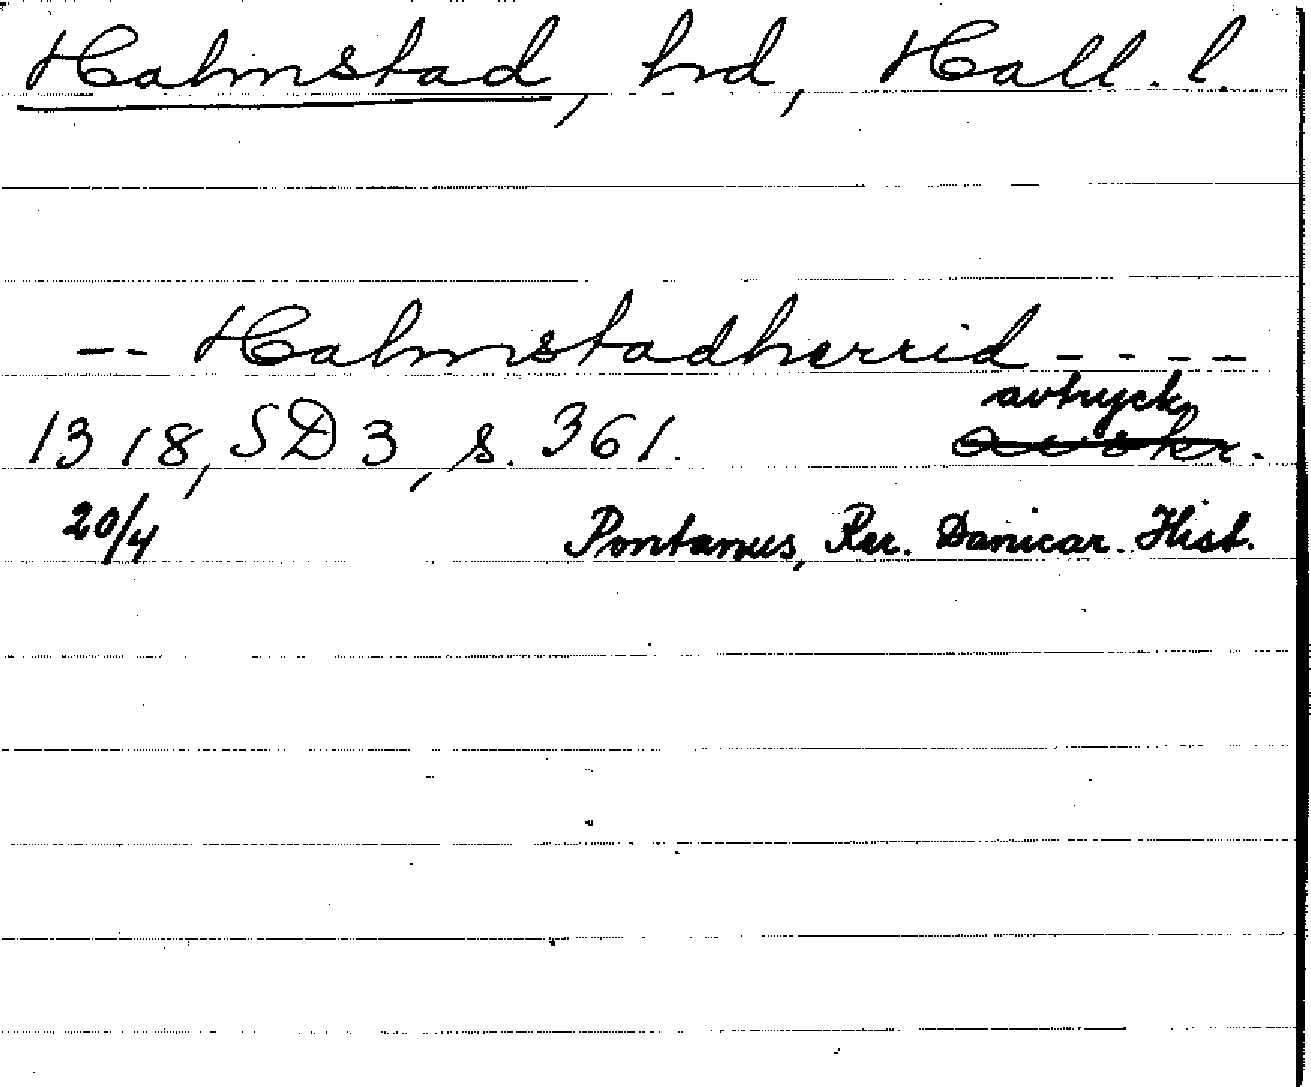 Halmstad, hd, Hall. l.
-- Halmstadherrid - - - -
avtryck
1318, SD 3, s. 361. avskr.
20/4 Pontanus, Rer. Danicar. Hist.